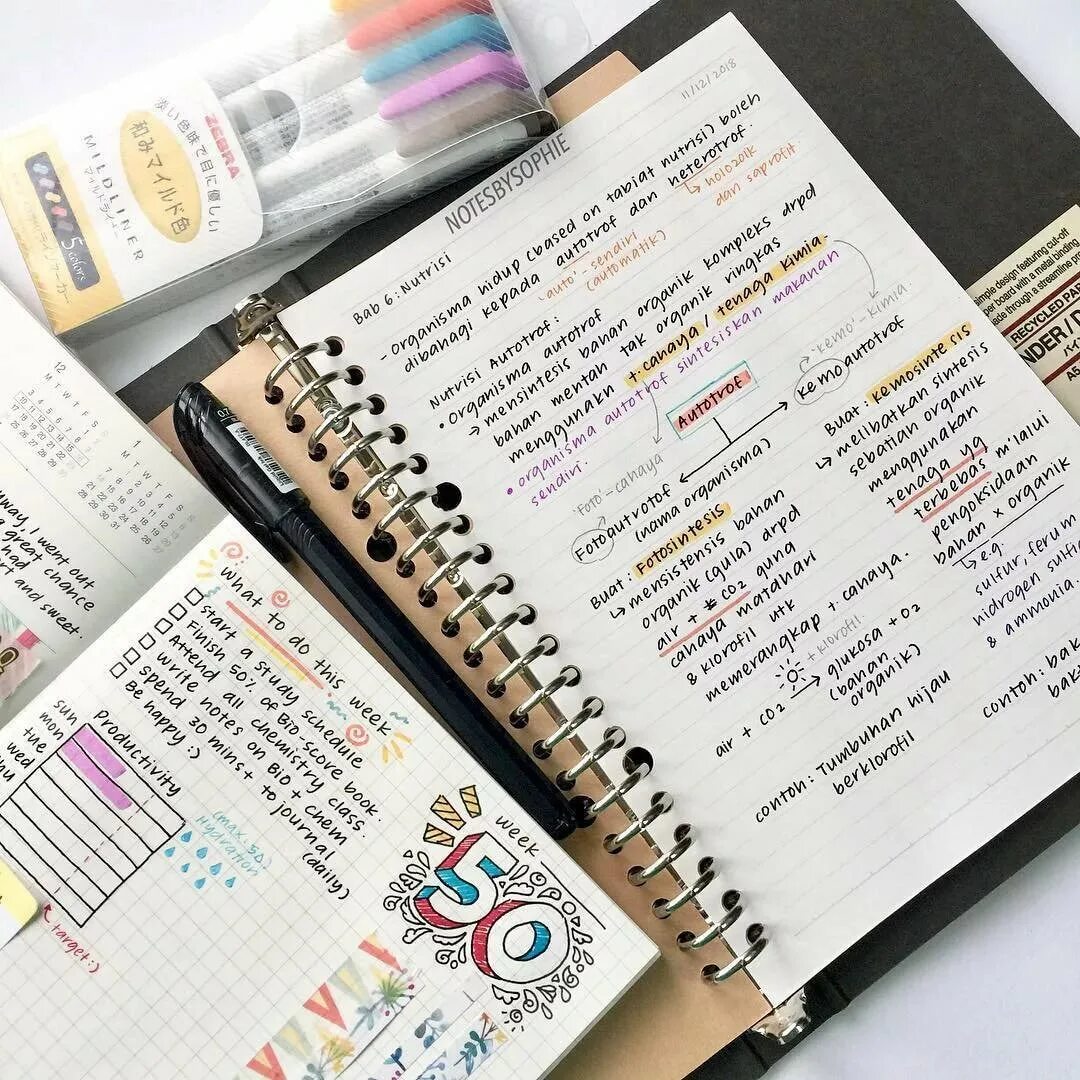 ZEBRA
淡い色味で目に優しい
和みマイルド色
MILDLINER
マイルドライナー
5 colors
11/12/2018
NOTESBYSOPHIE
Bab 6: Nutrisi
- organisma hidup (based on tabiat nutrisi) boleh
dibahagi kepada autotrof dan heterotrof.
'auto' - sendiri
(automatik)
↳ holozoik
dan saprofit.
Nutrisi Autotrof:
• organisma autotrof
↳ mensintesis bahan organik kompleks drpd
bahan mentah tak organik ringkas
menggunakn t.cahaya / tenaga kimia.
• organisma autotrof sintesiskan makanan
sendiri.
Autotrof
'Foto' - cahaya
'kemo' - kimia.
Fotoautotrof
kemoautotrof
(nama organisma)
Buat: Fotosintesis
↳ mensistensis bahan
organik (gula) drpd
air + CO2 guna
cahaya matahari
& klorofil utk
memerangkap t.cahaya.
+ klorofil
air + CO2 → glukosa + O2
(bahan
organik)
contoh: Tumbuhan hijau
berklorofil
Buat: kemosintesis
↳ melibatkan sintesis
sebatian organik
menggunakan
tenaga yg
terbebas m'lalui
pengoksidaan
bahan x organik
↳ e.g.
sulfur, ferum
hidrogen sulfi
& ammonia.
contoh: bak
bak
simple design featuring cut-off
per board with a metal binding
made through a streamline pro
RECYCLED PAP
NDER/D
A5
07
12
M T W T F S
1
M T W T F S
way, I went out
great chance
had
and sweet.
what to do this week
☐ Start a study schedule
☐ Finish 50% of Bio-score book.
☐ Attend all chemistry class.
☐ Write notes on Bio + chem
☐ Spend 30 mins+ to journal
(daily)
☐ Be happy :)
Productivity
sun
mon
tue
wed
thu
target :)
Hydration
week
50